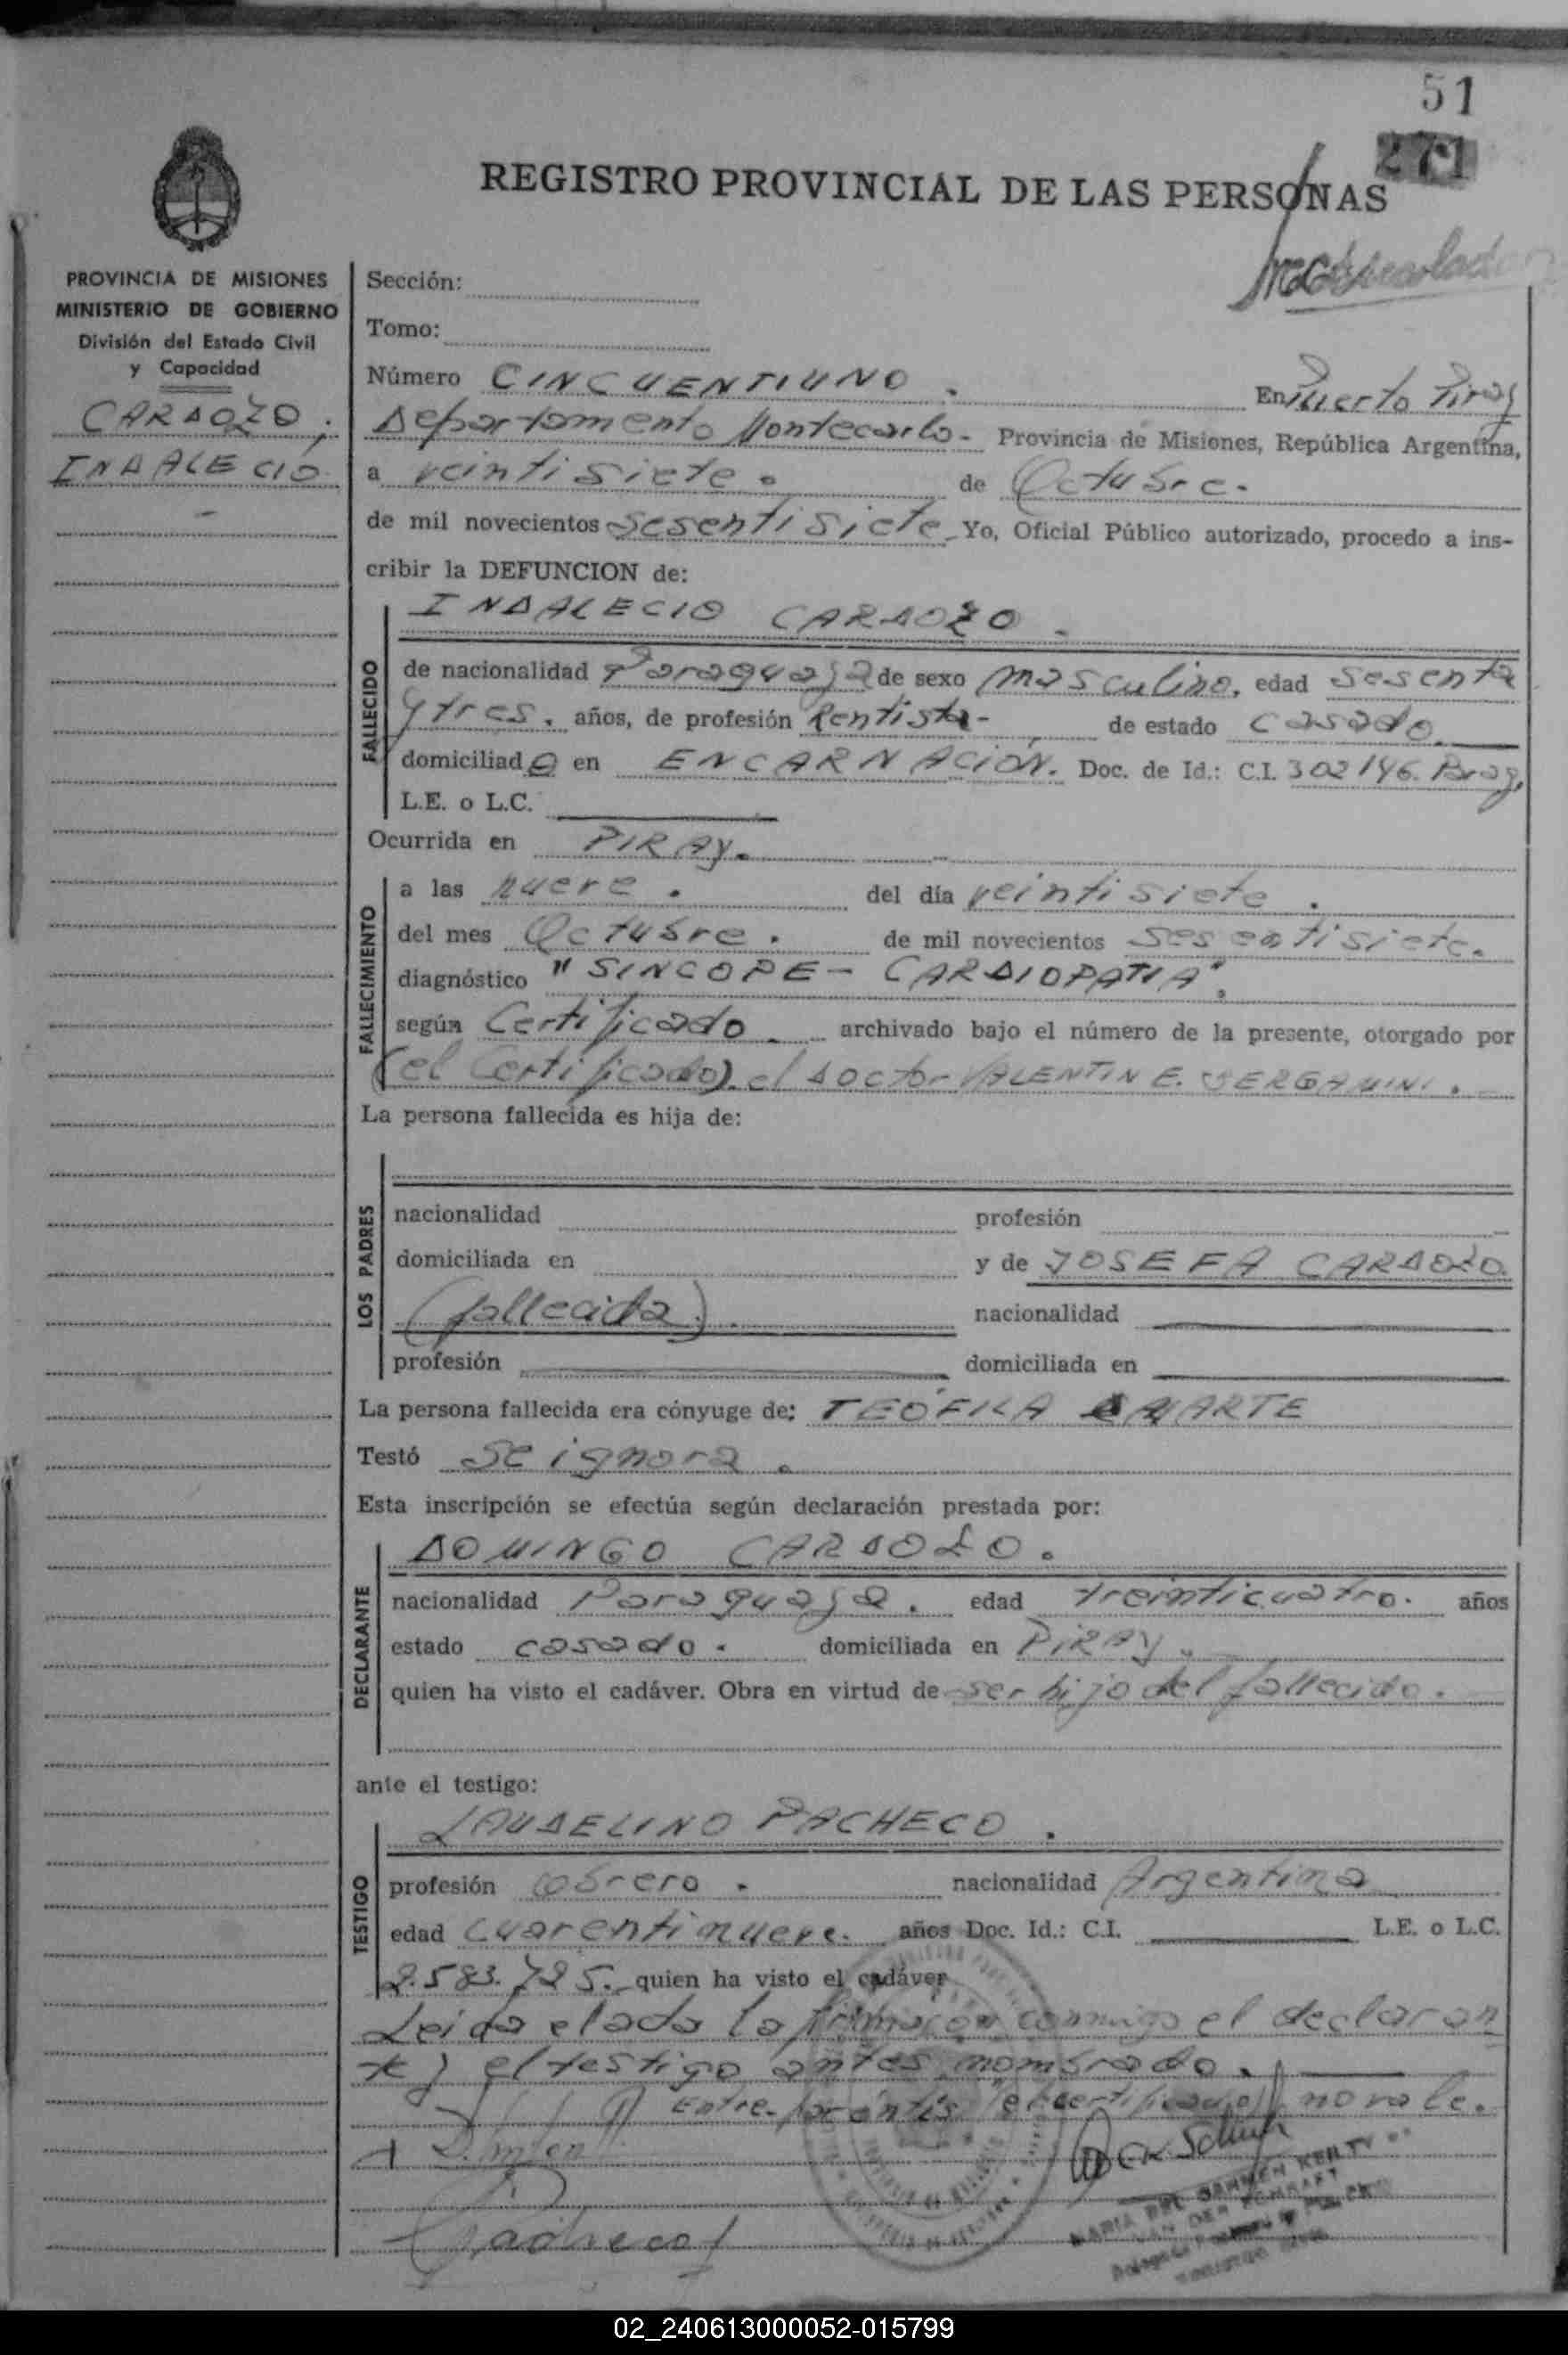 51
271
REGISTRO PROVINCIAL DE LAS PERSONAS
PROVINCIA DE MISIONES
MINISTERIO DE GOBIERNO
División del Estado Civil
y Capacidad
CARDOZO,
INDALECIO
Sección:
Tomo:
Número CINCUENTIUNO. En Puerto Piray
Departamento Montecarlo - Provincia de Misiones, República Argentina,
a veintisiete. de Octubre.
de mil novecientos sesentisiete. Yo, Oficial Público autorizado, procedo a ins-
cribir la DEFUNCION de:
INDALECIO CARDOZO.
FALLECIDO
de nacionalidad Paraguaya de sexo masculino, edad sesenta
y tres. años, de profesión Rentista - de estado casado
domiciliado en ENCARNACIÓN. Doc. de Id.: C.I. 302146.
L.E. o L.C.
Ocurrida en PIRAY.
FALLECIMIENTO
a las nueve. del día veintisiete.
del mes Octubre. de mil novecientos sesentisiete.
diagnóstico "SINCOPE - CARDIOPATIA".
según Certificado archivado bajo el número de la presente, otorgado por
(el Certificado) el Doctor VALENTIN E. BERGAMINI.
La persona fallecida es hija de:
LOS PADRES
nacionalidad profesión
domiciliada en y de JOSEFA CARDOZO.
(fallecida). nacionalidad
profesión domiciliada en
La persona fallecida era cónyuge de: TEÓFILA
Testó Se ignora.
Esta inscripción se efectúa según declaración prestada por:
DOMINGO CARDOZO.
DECLARANTE
nacionalidad Paraguaya. edad treinticuatro. años
estado casado. domiciliada en PIRAY.
quien ha visto el cadáver. Obra en virtud de ser hijo del fallecido.
ante el testigo:
LAUDELINO PACHECO.
TESTIGO
profesión obrero. nacionalidad Argentina
edad cuarentinueve. años Doc. Id.: C.I. L.E. o L.C.
2.583.725. quien ha visto el cadáver
Leida el acta la conmigo el declaran
te y el testigo antes nombrado.
Entre-paréntis "el certificado" no vale.
Pacheco
MARIA DEL CARMEN
VAN DER
02_240613000052-015799